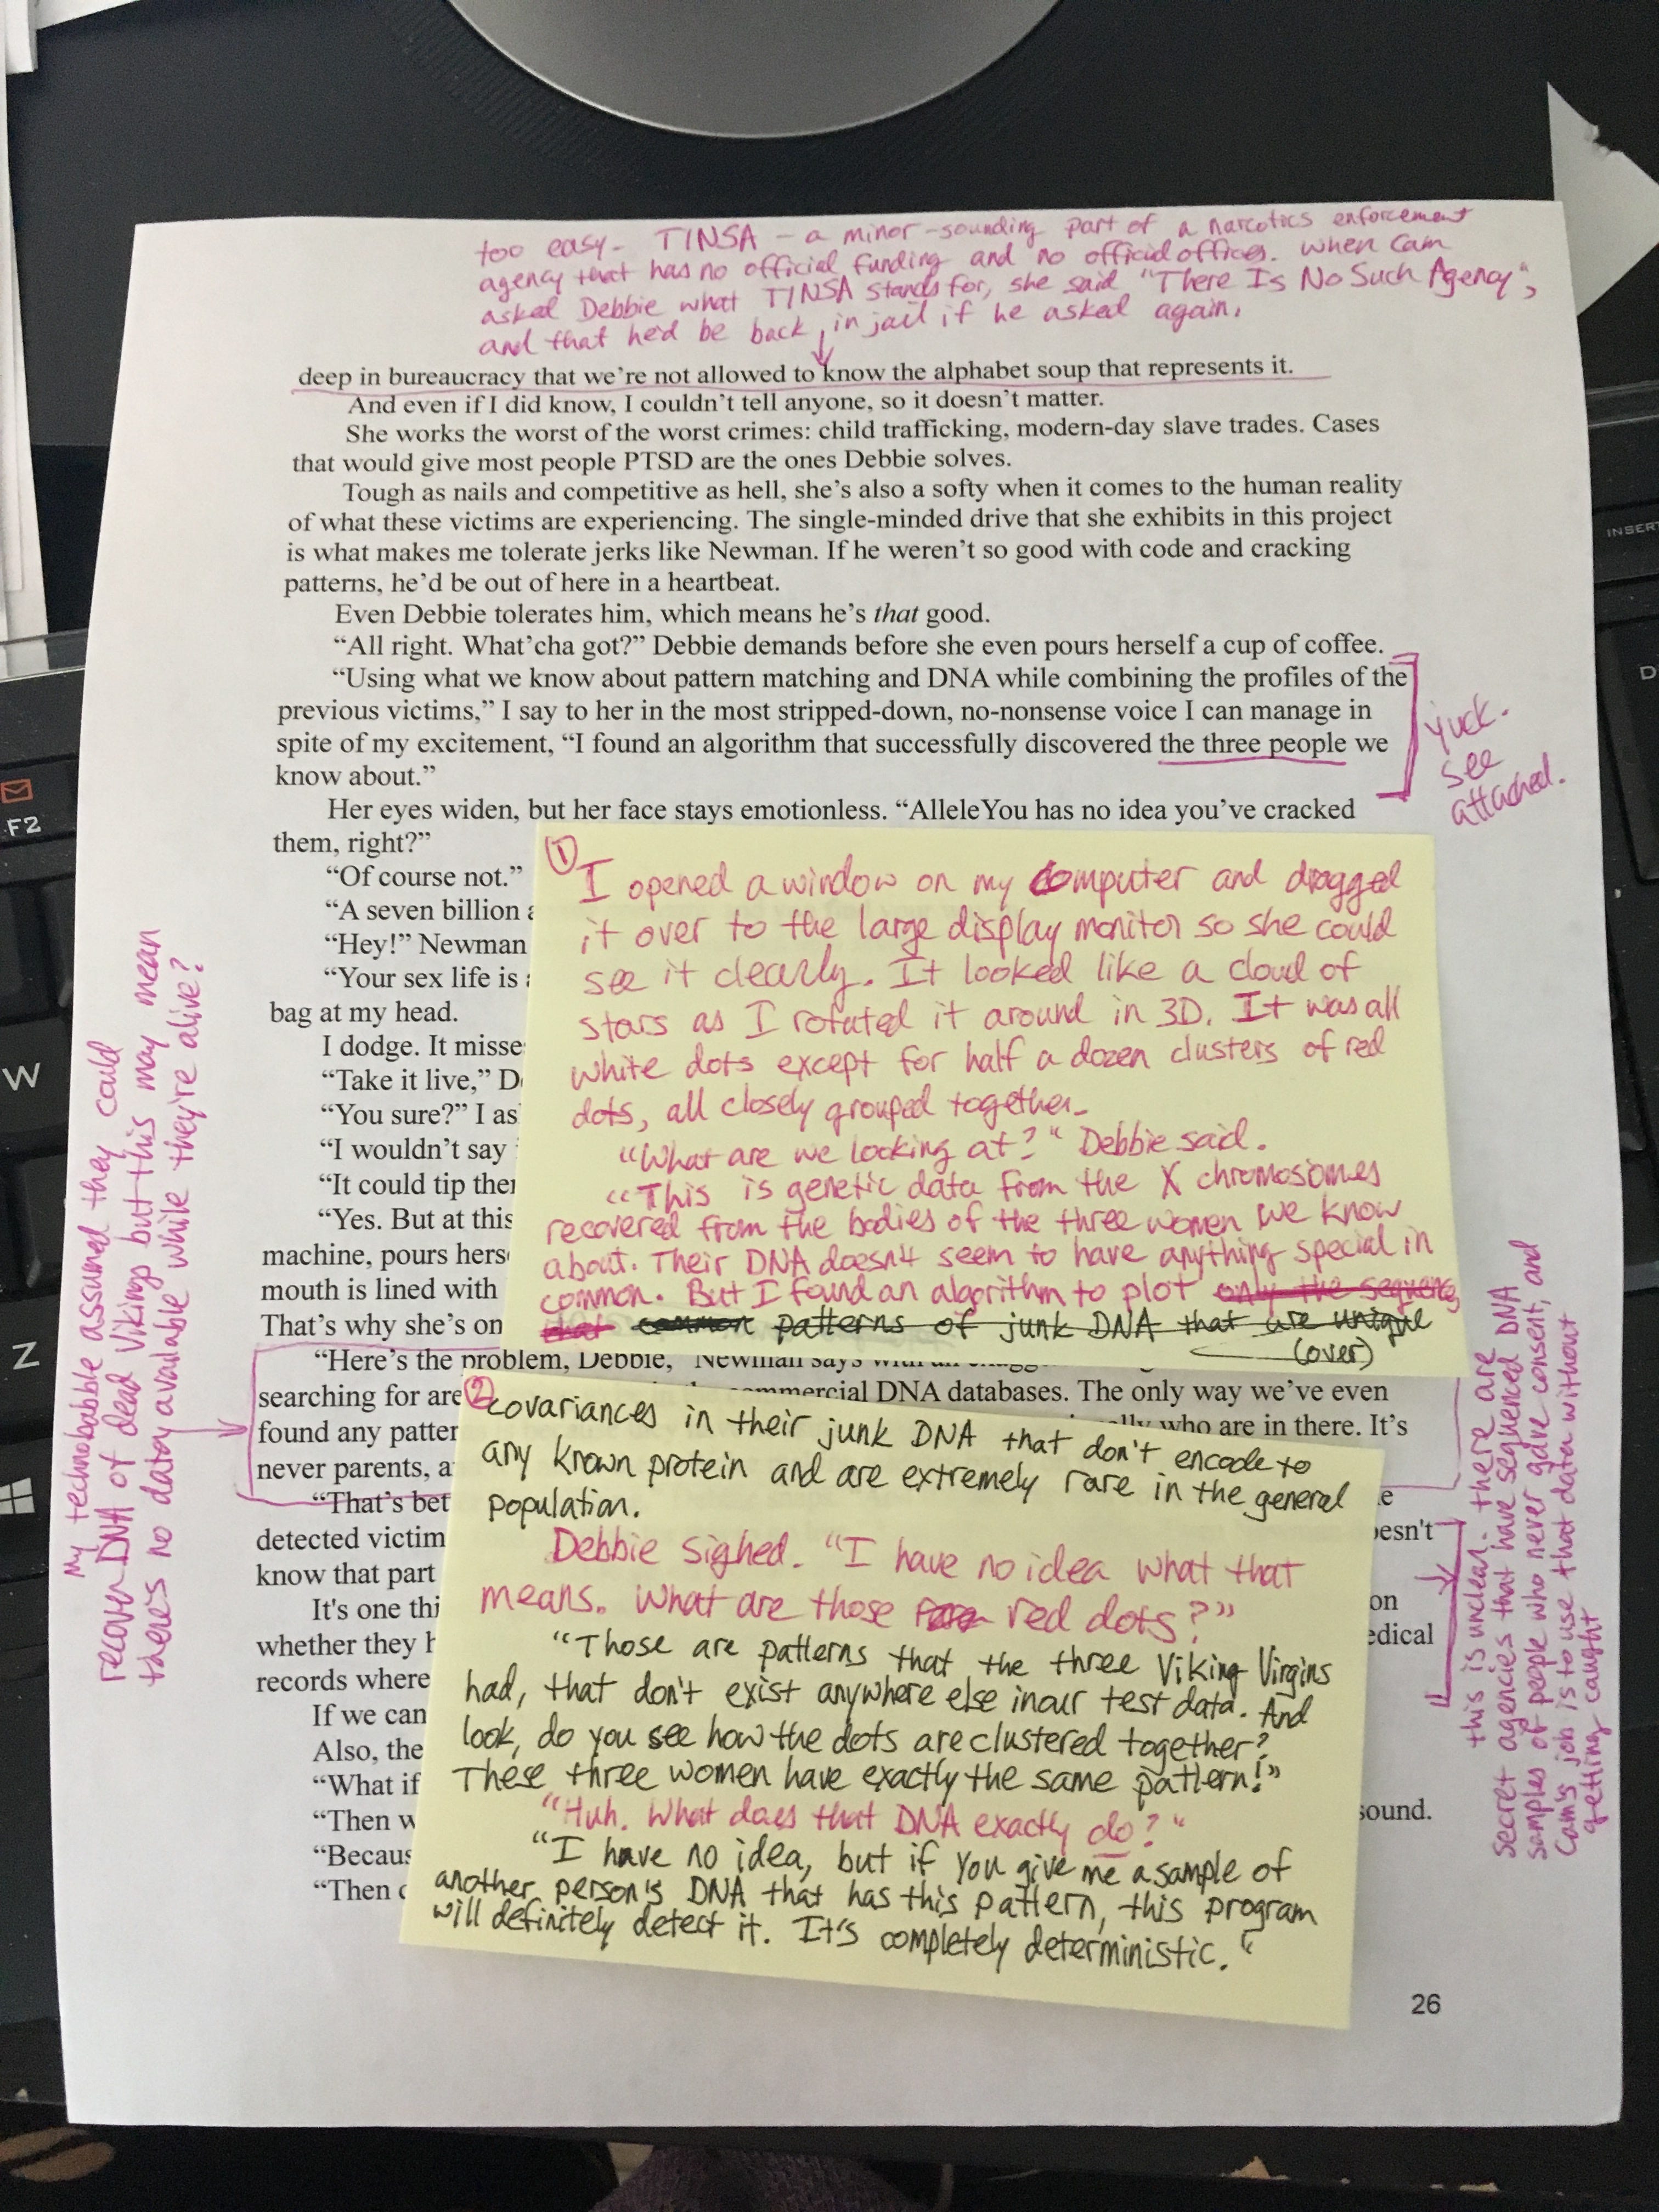 too easy - TINSA - a minor-sounding part of a narcotics enforcement
agency that has no official funding and no official offices. When Cam
asked Debbie what TINSA stands for, she said "There Is No Such Agency",
and that he'd be back in jail if he asked again.
deep in bureaucracy that we're not allowed to know the alphabet soup that represents it.
And even if I did know, I couldn't tell anyone, so it doesn't matter.
She works the worst of the worst crimes: child trafficking, modern-day slave trades. Cases
that would give most people PTSD are the ones Debbie solves.
Tough as nails and competitive as hell, she's also a softy when it comes to the human reality
of what these victims are experiencing. The single-minded drive that she exhibits in this project
is what makes me tolerate jerks like Newman. If he weren't so good with code and cracking
patterns, he'd be out of here in a heartbeat.
Even Debbie tolerates him, which means he's that good.
“All right. What'cha got?” Debbie demands before she even pours herself a cup of coffee.
“Using what we know about pattern matching and DNA while combining the profiles of the
previous victims,” I say to her in the most stripped-down, no-nonsense voice I can manage in
spite of my excitement, “I found an algorithm that successfully discovered the three people we
know about.”
yuck.
see
attached.
Her eyes widen, but her face stays emotionless. “AlleleYou has no idea you've cracked
them, right?”
“Of course not.”
“A seven billion
“Hey!” Newman
“Your sex life is
bag at my head.
I dodge. It misse
“Take it live,” D
“You sure?” I as
“I wouldn't say
“It could tip the
“Yes. But at this
machine, pours hers
mouth is lined with
That's why she's on
“Here's the problem, Debbie,” Newman says
searching for are commercial DNA databases. The only way we've even
found any patter who are in there. It's
never parents, a
“That's bet
detected victim esn't
know that part
It's one thi on
whether they h edical
records where
If we can
Also, the
“What if
“Then w sound.
“Becaus
“Then
1
I opened a window on my computer and dragged
it over to the large display monitor so she could
see it clearly. It looked like a cloud of
stars as I rotated it around in 3D. It was all
white dots except for half a dozen clusters of red
dots, all closely grouped together.
"What are we looking at?" Debbie said.
"This is genetic data from the X chromosomes
recovered from the bodies of the three women we know
about. Their DNA doesn't seem to have anything special in
common. But I found an algorithm to plot only the sequens
that common patterns of junk DNA that are unique
(over)
2
covariances in their junk DNA that don't encode to
any known protein and are extremely rare in the general
population.
Debbie sighed. "I have no idea what that
means. What are those red dots?"
"Those are patterns that the three Viking Virgins
had, that don't exist anywhere else in our test data. And
look, do you see how the dots are clustered together?
These three women have exactly the same pattern!"
"Huh. What does that DNA exactly do?"
"I have no idea, but if you give me a sample of
another person's DNA that has this pattern, this program
will definitely detect it. It's completely deterministic."
26
My technobabble assumed they could
recover DNA of dead Vikings but this may mean
there's no data available while they're alive?
this is unclear. there are
secret agencies that have sequenced DNA
samples of people who never gave consent, and
Cam's job is to use that data without
getting caught
F2
W
Z
INSERT
D